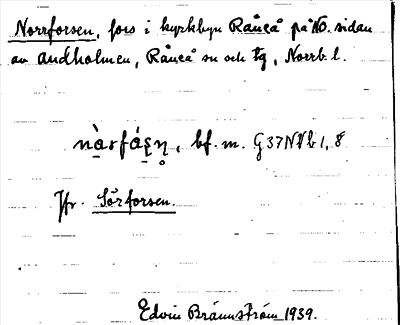 Norrforsen, fors i kyrkbyn Råneå på NO. sidan
av Andholmen, Råneå sn och tg, Norrb. l.
bf. m. G 37 NVb 1, 8
Jfr. Sörforsen.
Edvin Brännström 1939.